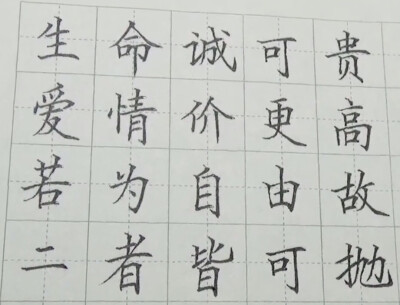 生命诚可贵
爱情价更高
若为自由故
二者皆可抛